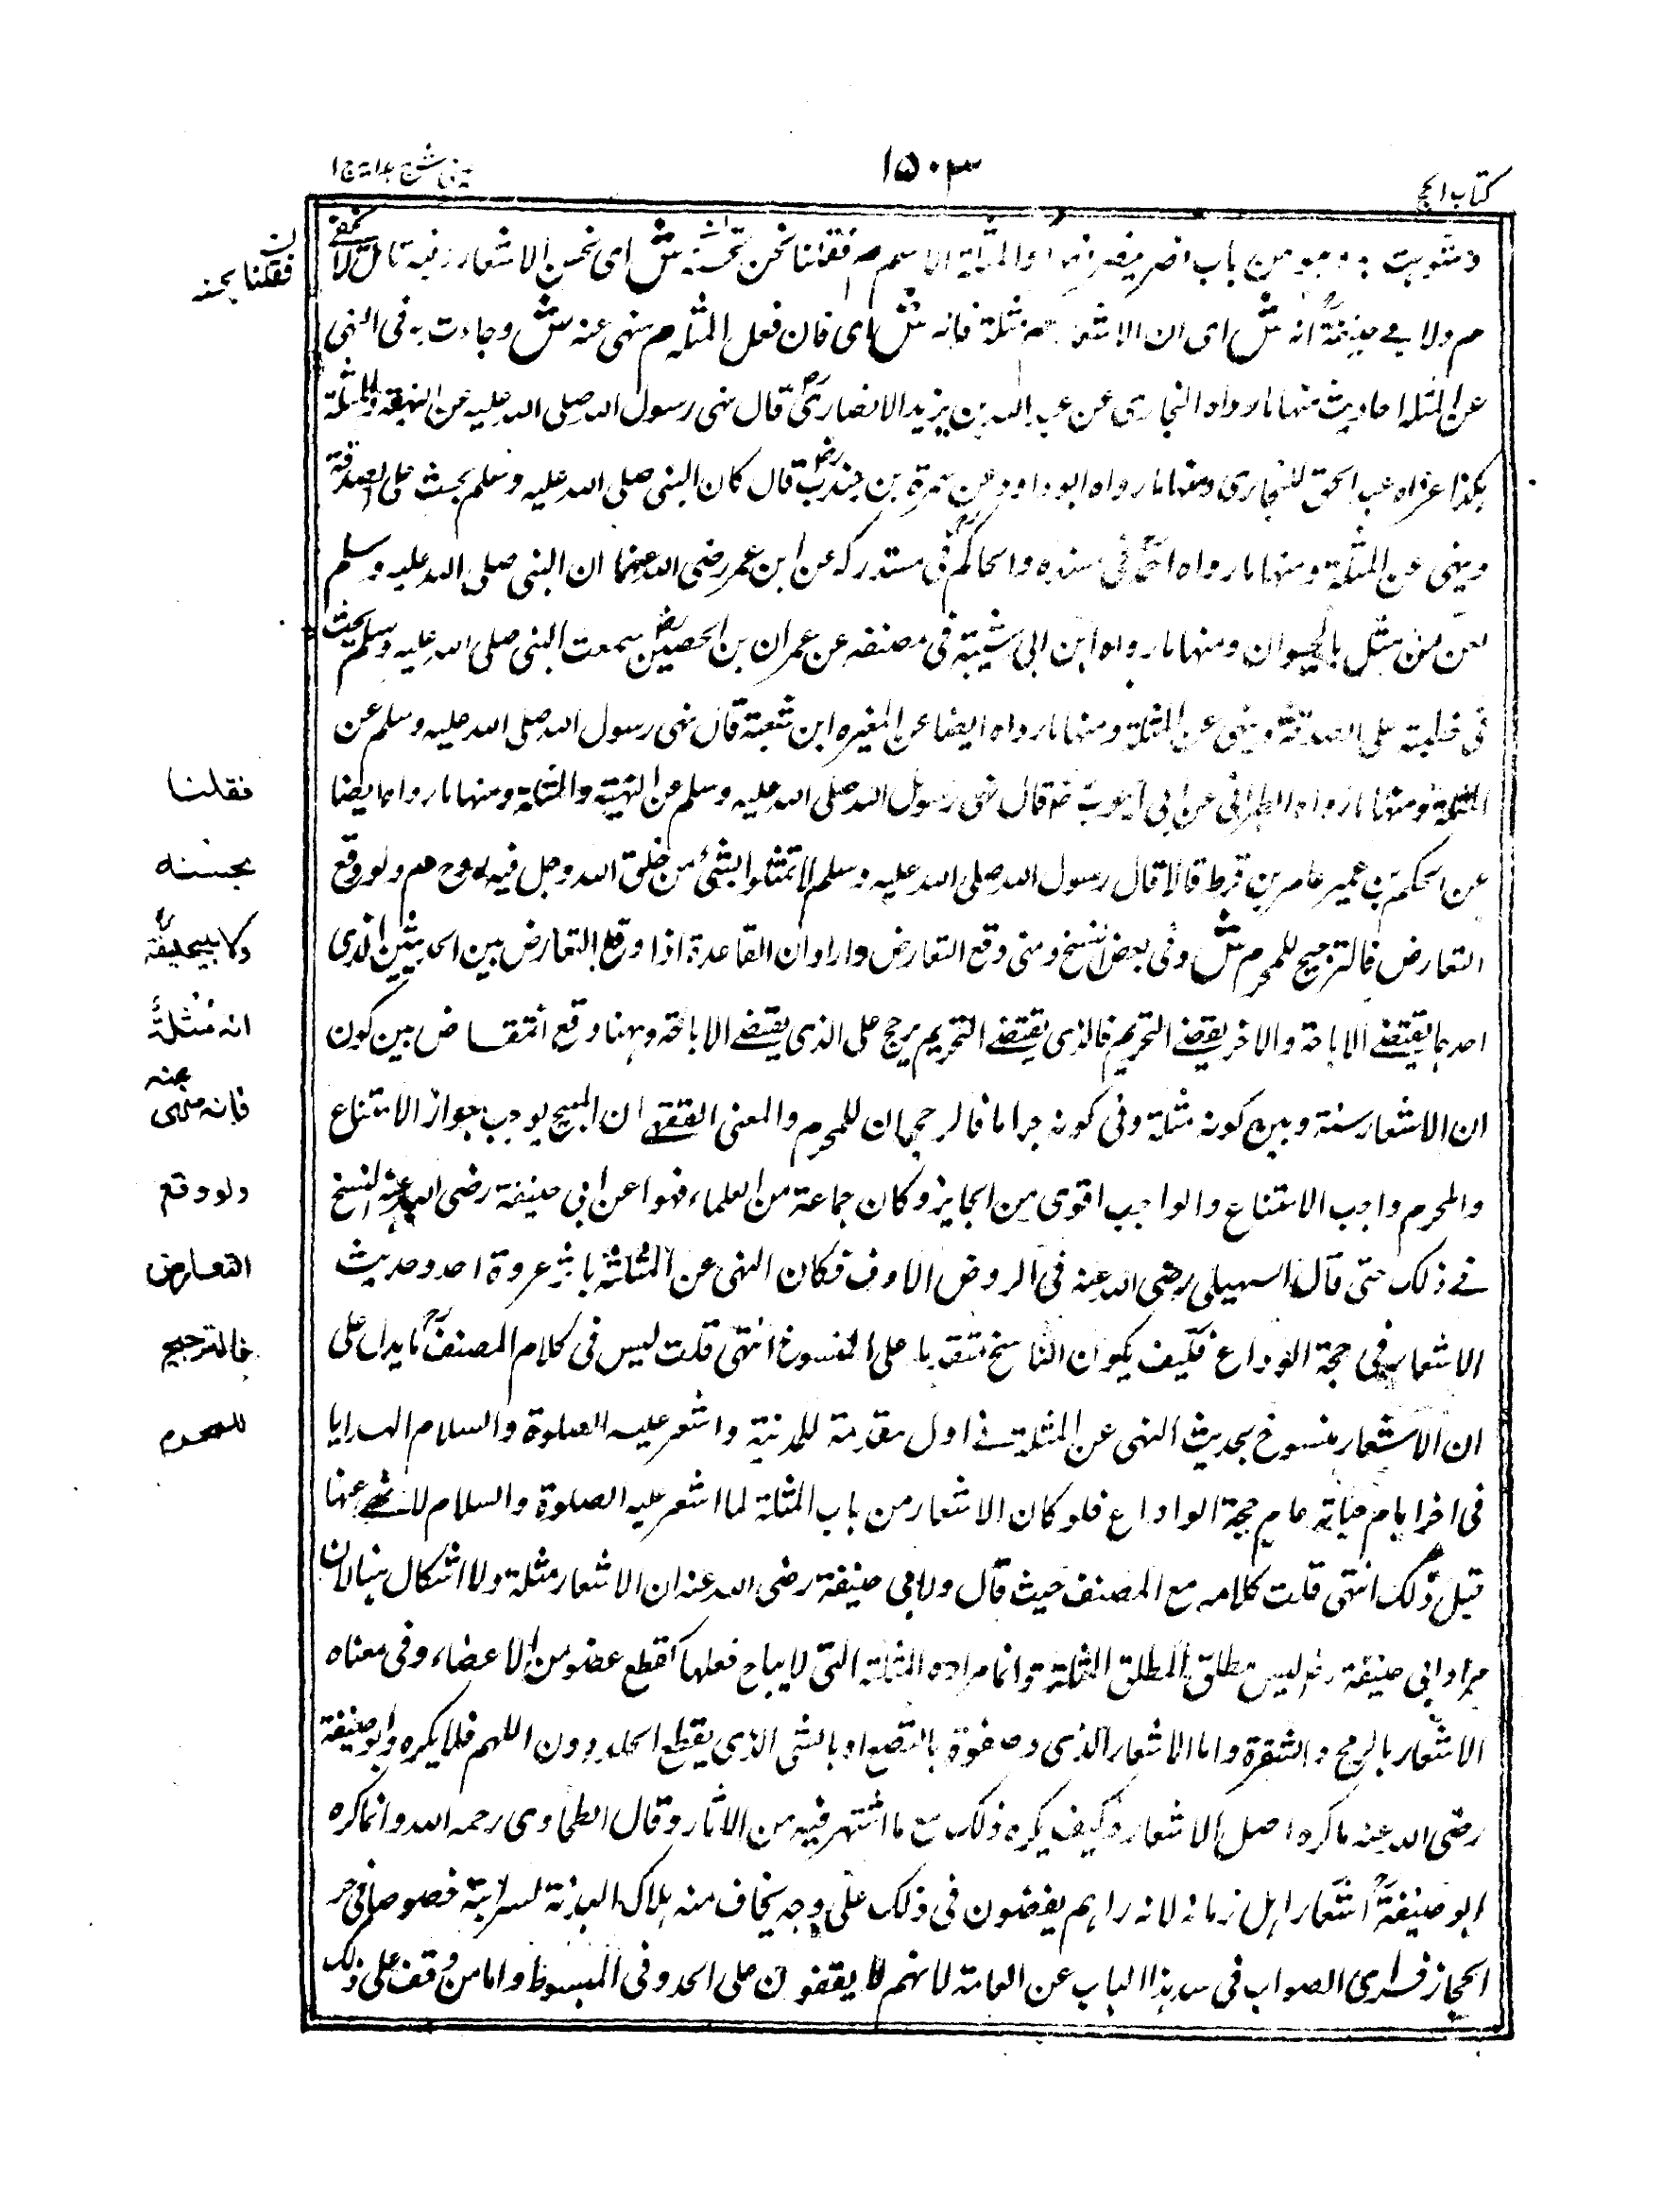 كتاب الحج
١٥٠٣
عینی شرح هدایة ج ١
وهو من باب نصر ينصر والمثلة الاسم م فقلنا نحن تحسنه ش اى نحسن الاشعار وفيه تامل لا يخفى
م ولابي حنيفةؒ انه ش اى ان الاشعار م مثلة فانه ش اى فان فعل المثله م منهى عنه ش وجاءت به فى النهى
عن المثله احاديث منها ما رواه البخارى عن عبد الله بن يزيد الانصارىؓ قال نهى رسول الله صلى الله عليه عن النهبة والمثلة
هكذا عزاه عبد الحق للبخارى ومنها ما رواه ابو داود عن سمرة بن جندبؓ قال كان النبى صلى الله عليه وسلم يحث على الصدقة
وينهى عن المثلة ومنها ما رواه احمدؒ فى مسنده والحاكمؒ فى مستدركه عن ابن عمر رضى الله عنهما ان النبى صلى الله عليه وسلم
لعن من مثل بالحيوان ومنها ما رواه ابن ابى شيبة فى مصنفه عن عمران بن الحصينؓ سمعت النبى صلى الله عليه وسلم يحث
فى خطبته على الصدقة وينهى عن المثلة ومنها ما رواه ايضا عن المغيره ابن شعبة قال نهى رسول الله صلى الله عليه وسلم عن
المثلة ومنها ما رواه الطبرانى عن ابى ايوب رض قال نهى رسول الله صلى الله عليه وسلم عن النهبة والمثلة ومنها ما رواه ايضا
عن الحكم بن عمير عامر بن قرط قالا قال رسول الله صلى الله عليه وسلم لا تمثلوا بشئ من خلق الله وجل فيه روح م ولو وقع
التعارض فالترجيح للمحرم ش وفى بعض النسخ ومتى وقع التعارض واراد ان القاعدة اذا وقع التعارض بين الحديثين الذى
احدهما يقتضے الاباحة والاخر يقتضے التحريم فالذى يقتضے التحريم يرجح على الذى يقتضے الاباحة وههنا وقع التعارض بين كون
ان الاشعار سنة وبين كونه مثلة وفى كونه حراما فالرجحان للمحرم والمعنى الفقهے ان المبيح يوجب جواز الامتناع
والمحرم واجب الامتناع والواجب اقوى من الجايز وكان جماعة من العلماء فهوا عن ابى حنيفة رضى الله عنه النسخ
فے ذلك حتى قال السهيلى رضى الله عنه فى الروض الاوف فكان النهى عن المثلة باثر غزوة احد وحديث
الاشعار فى حجة الوداع فكيف يكون الناسخ متقدما على المنسوخ انتهى قلت ليس فى كلام المصنفؒ ما يدل على
ان الاشعار منسوخ بحديث النهى عن المثلة فے اول مقدمة للمدنية واشعر عليه الصلوة والسلام الهدايا
فى اخر ايام حياته عام حجة الواداع فلو كان الاشعار من باب المثلة لما اشعر عليه الصلوة والسلام لانه نهے عنها
قبل ذلك انتهى قلت كلامه مع المصنف حيث قال ولابى حنيفة رضى الله عنه ان الاشعار مثلة ولا اشكال هنا لان
مراد ابى حنيفة رض ليس مطلق المثلة وانما مراده المثلة التى لا يباح فعلها كقطع عضو من الاعضاء وفى معناه
الاشعار بالرمح والشفرة واما الاشعار الذى بالشى الذى يقطع الجلد دون اللحم فلا يكره وابو حنيفة
رضى الله عنه ما كره اصل الاشعار وكيف يكره ذلك مع ما اشتهر فيه من الاثار وقال الطحاوى رحمه الله وانما كره
ابو حنيفةؒ اشعار اهل زمانه لانه راهم يفضون فى ذلك على وجه يخاف منه هلاك البدنة لسرايته خصوصا فى حر
الحجاز فراى الصواب فى سد هذا الباب عن العامة لانهم لا يقفون على الحد وفى المبسوط واما من وقف على ذلك
ن
فقلنا بحسنه
فقلنا
بحسنه
ولابي حنيفةؒ
انه مُثْلَةٌ
فانه منهى عنه
ولو وقع
التعارض
فالترجيح
للمحرم